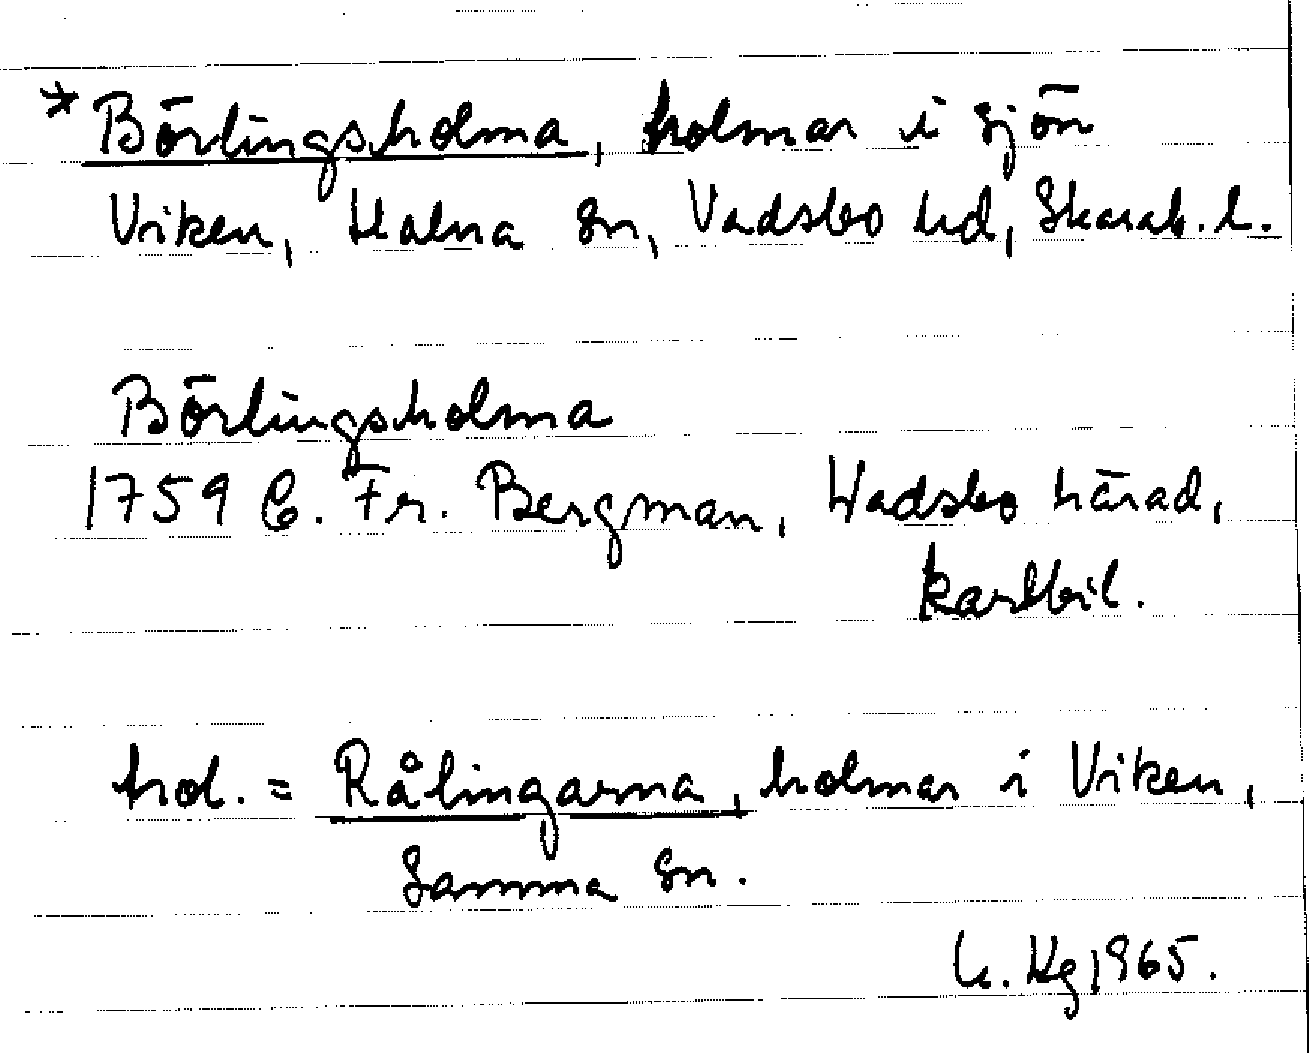 * Börlingsholma, holmar i sjön
Viken, Halna sn, Vadsbo hd, Skarab. l.
Börlingsholma
1759 C. Fr. Bergman, Wadsbo härad,
kartbil.
trol. = Rålingarna, holmar i Viken,
samma sn.
Hg 1965.